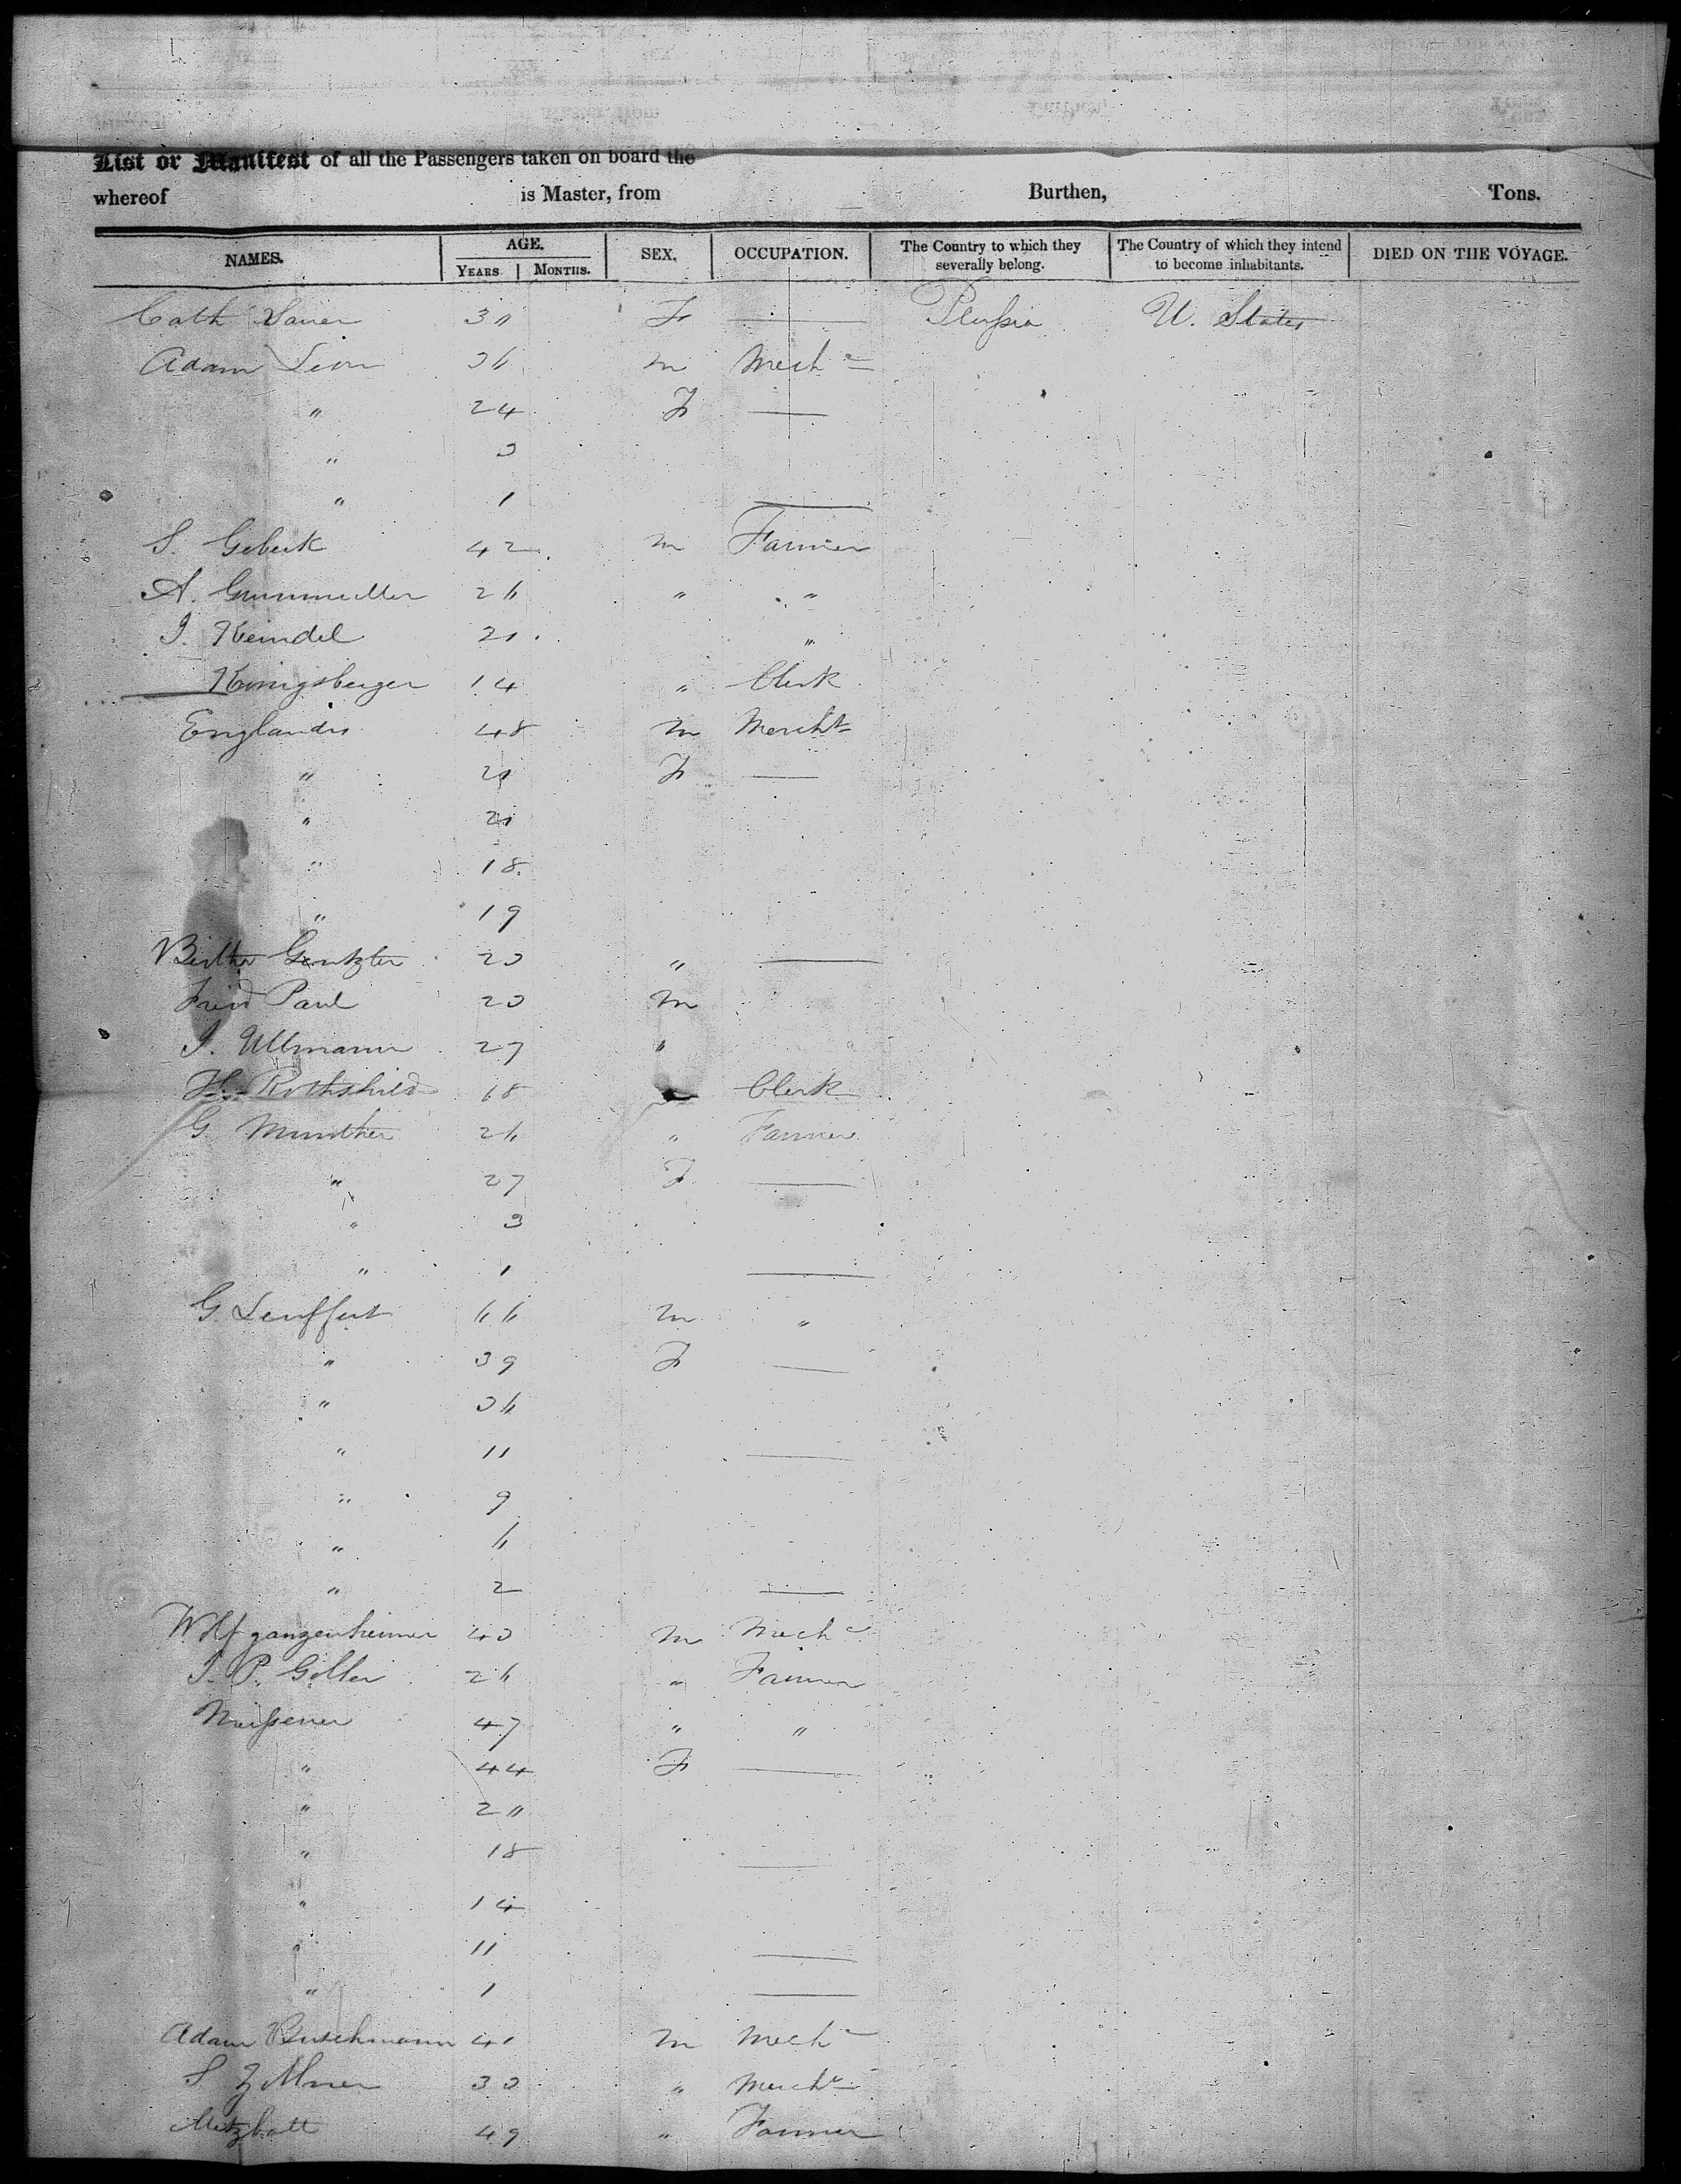 List or Manifest of all the Passengers taken on board the
whereof is Master, from Burthen, Tons.
NAMES. AGE. YEARS MONTHS. SEX. OCCUPATION. The Country to which they severally belong. The Country of which they intend to become inhabitants. DIED ON THE VOYAGE.
Cath Sauer 30 F — Prussia U. States
Adam Leon 36 m Mech
" 24 F —
" 3
" 1 —
S. Gebert 42 m Farmer
A. Grummuller 26 " "
J. Keindel 21 "
Konigsberger 14 " Clerk
Englander 48 m Mercht
" 21 F —
" 21
" 18
" 19
Bertha 23 " —
Paul 23 m
J. Ullmann 27 "
H. Rothshild 18 Clerk
G. Munther 26 " Farmer
" 27 F —
" 3
" 1 —
G. Seuffert 66 m "
" 39 F —
" 36
" 11 —
" 9
" 6
" 2 —
Wolf 43 m Mech
J. P. Goller 26 " Farmer
Meißener 47 " "
" 44 F —
" 20
" 18 —
" 14
" 11 —
" 1 —
Adam Buschmann 41 m Mech
S Zollner 33 " Mercht
49 " Farmer